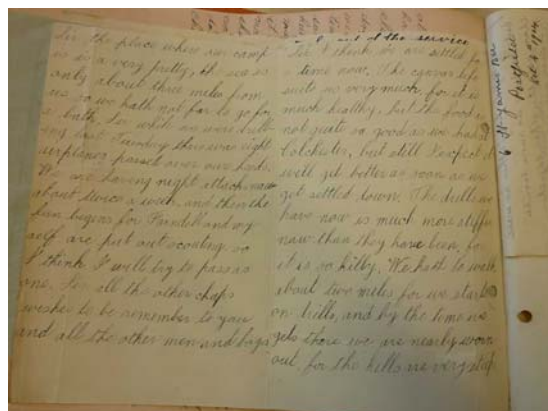 Sir the place where our camp
is is a very pretty, the sea is
only about three miles from
us so we hath not far to go for
a bath, Sir while we were drill-
ing last Tuesday there was eight
airplanes passed over our heads.
We are having night attack now
about twice a week, and then the
fun begins for Pundell and my
self are put out scouting so
I think I will try to pass as
one. Sir all the other chaps
wishes to be remember to you
and all the other men and boys
out of the service
Sir I think we are settled for
a time now. The canvas life
suits us very much, for it is
much healthy, but the food is
not quite so good as we had at
Colchester, but still I expect it
will get better as soon as we
get settled down. The drills we
have now is much more stiffer
now than they have been, for
it is so hilly. We hath to walk
about two miles for we start
on drills, and by the time we
gets there we are nearly worn
out, for the hills are very steep
6 St James
Portfield
Oct 4th 1914